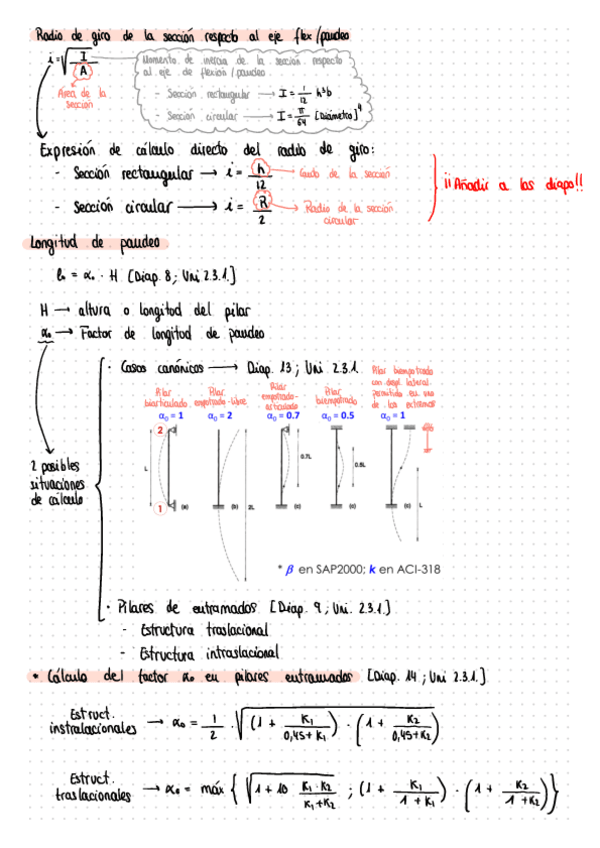 Radio de giro de la sección respecto al eje flex/pandeo
i = √(I/A)
Momento de inercia de la sección respecto
al eje de flexión/pandeo.
- Sección rectangular → I = 1/12 h³b
- Sección circular → I = π/64 [Diámetro]⁴
Área de la
sección
Expresión de cálculo directo del radio de giro:
- Sección rectangular → i = h/12 → Canto de la sección
- Sección circular → i = R/2 → Radio de la sección
circular.
¡¡Añadir a las diapo!!
Longitud de pandeo
l₀ = α₀ · H [Diap. 8; Uni 2.3.1.]
H → altura o longitud del pilar
α₀ → Factor de longitud de pandeo
2 posibles
situaciones
de cálculo
· Casos canónicos → Diap. 13; Uni 2.3.1.
Pilar
biarticulado
α₀ = 1
Pilar
empotrado-libre
α₀ = 2
Pilar
empotrado-
articulado
α₀ = 0.7
Pilar
biempotrado
α₀ = 0.5
Pilar biempotrado
con despl. lateral
permitido en uno
de los extremos
α₀ = 1
2
L
1
(a)
(b)
2L
0.7L
(c)
0.5L
(c)
L
(c)
* β en SAP2000; k en ACI-318
· Pilares de entramados [Diap. 9; Uni. 2.3.1.]
- Estructura traslacional
- Estructura intraslacional
* Cálculo del factor α₀ en pilares entramados [Diap. 14; Uni 2.3.1.]
Estruct.
instralacionales → α₀ = 1/2 · √((1 + K₁/(0,45+K₁)) · (1 + K₂/(0,45+K₂)))
Estruct.
traslacionales → α₀ = máx {√(1 + 10 K₁·K₂/(K₁+K₂)) ; (1 + K₁/(1+K₁)) · (1 + K₂/(1+K₂))}